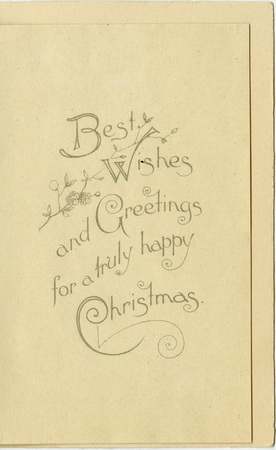 Best
Wishes
and Greetings
for a truly happy
Christmas.